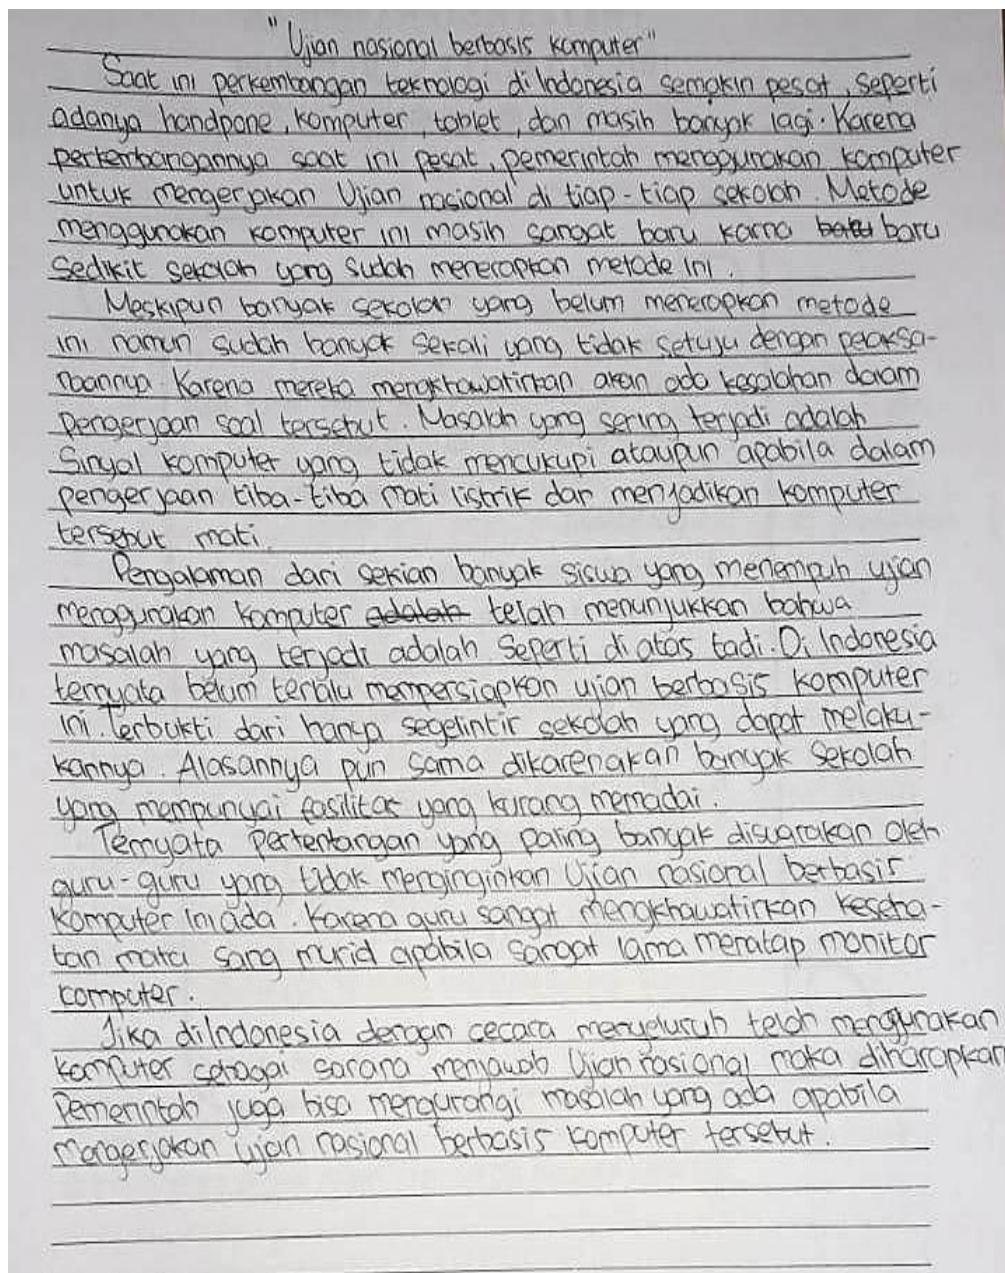 "Ujian nasional berbasis komputer"
Saat ini perkembangan teknologi di Indonesia semakin pesat, seperti
adanya handpone, komputer, tablet, dan masih banyak lagi. Karena
perkembangannya saat ini pesat, pemerintah menggunakan komputer
untuk mengerjakan Ujian nasional di tiap-tiap sekolah. Metode
menggunakan komputer ini masih sangat baru karna baru
Sedikit sekolah yang sudah menerapkan metode ini.
Meskipun banyak sekolah yang belum menerapkan metode
ini namun sudah banyak sekali yang tidak setuju dengan pelaksa-
naannya. Karena mereka mengkhawatirkan akan ada kesalahan dalam
pengerjaan soal tersebut. Masalah yang sering terjadi adalah
Sinyal komputer yang tidak mencukupi ataupun apabila dalam
pengerjaan tiba-tiba mati listrik dan menjadikan komputer
tersebut mati.
Pengalaman dari sekian banyak siswa yang menempuh ujian
menggunakan komputer adalah telah menunjukkan bahwa
masalah yang terjadi adalah seperti di atas tadi. Di Indonesia
ternyata belum terlalu mempersiapkan ujian berbasis komputer
ini. Terbukti dari hanya segelintir sekolah yang dapat melaku-
kannya. Alasannya pun sama dikarenakan banyak sekolah
yang mempunyai fasilitas yang kurang memadai.
Ternyata pertentangan yang paling banyak disuarakan oleh
guru-guru yang tidak menginginkan Ujian nasional berbasis
komputer ini ada. Karena guru sangat mengkhawatirkan keseha-
tan mata sang murid apabila sangat lama meratap monitor
komputer.
Jika diIndonesia dengan cecara menyeluruh telah menggunakan
komputer sebagai sarana menjawab Ujian nasional maka diharapkan
Pemerintah juga bisa mengurangi masalah yang ada apabila
mengerjakan ujian nasional berbasis komputer tersebut.